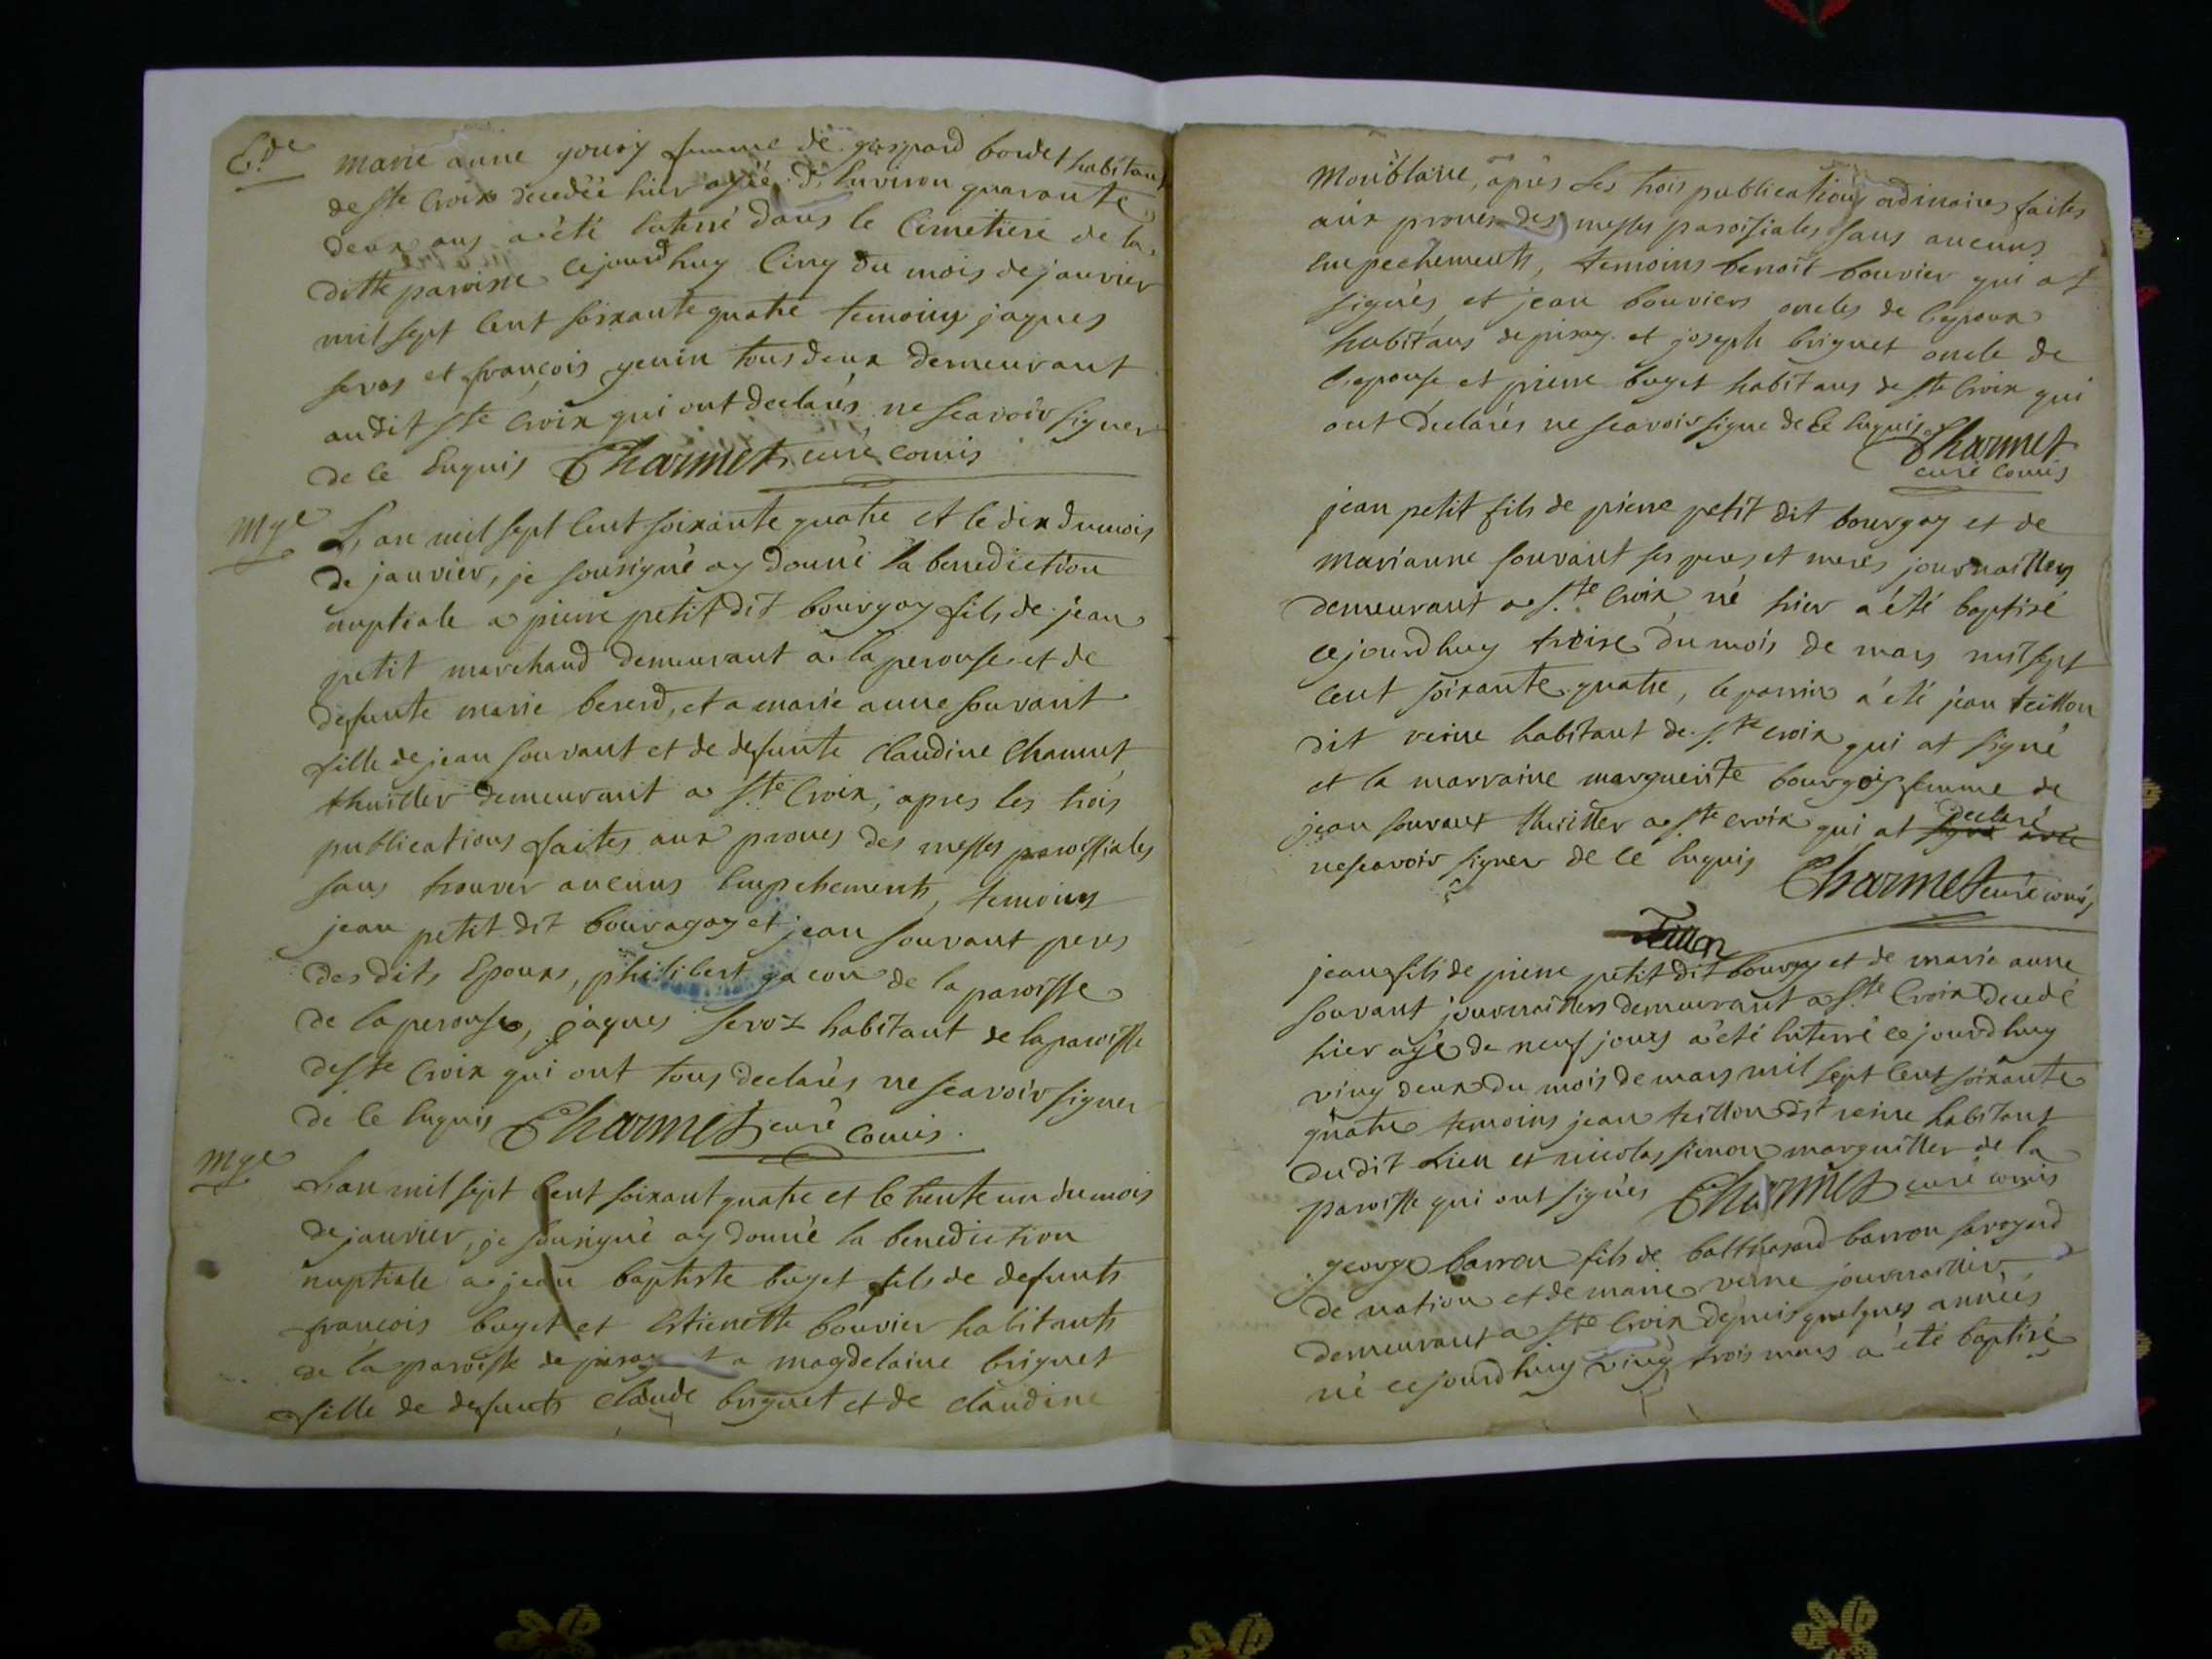 E.de
marie anne gouoy femme de gaspard bordet habitant
de ste Croix decedée hier agée d'Environ quarante
deux ans a été Enterré dans le Cimetiere de la
ditte paroisse cejourdhuy Cinq du mois de janvier
mil sept Cent soixante quatre temoins jaques
seros et françois genin tous deux demeurant
audit ste Croix qui ont declarés ne scavoir signer
de ce Enquis Charmet curé comis
Mge
L'an mil sept Cent soixante quatre et le dix du mois
de janvier, je sousigné ay donné la benediction
nuptiale a pierre petit dit bourgoy fils de jean
petit marchand demeurant a la perouse et de
defunte marie bererd, et a marie anne souvant
fille de jean souvant et de defunte Claudine Chanut
thuiller demeurant a Ste Croix, apres les trois
publications faites aux prones des messes paroissiales
sans trouver aucuns Empechements, temoins
jean petit dit bouragoy et jean souvant peres
des dits Epoux, philibert gacon de la paroisse
de la perouse, jaques seroz habitant de la paroisse
de Ste Croix qui ont tous declarés ne scavoir signer
de ce Enquis Charmet curé Comis.
Mge
L'an mil sept Cent soixant quatre et le trente un du mois
de janvier, je sousigné ay donné la benediction
nuptiale a jean baptiste buget fils de defunts
françois buget et Estienette bouvier habitants
de la paroisse de pisay et a magdelaine briguet
fille de defunts Claude briguet et de Claudine
Monblaine, après les trois publications ordinaires faites
aux prones des messes paroisiales sans aucuns
Empechements, temoins benoit bouvier qui at
signés, et jean bouviers oncles de l'epoux
habitans de pisay et joseph briguet oncle de
l'epouse et pierre buget habitans de Ste Croix qui
ont declarés ne scavoir signe de ce Enquis
Charmet
curé Comis
jean petit fils de pierre petit dit bourgoy et de
marianne souvant ses peres et meres journaillers
demeurant a Ste Croix né hier a été baptisé
cejourdhuy treise du mois de mars mil sept
Cent soixante quatre, le parrin a été jean teillon
dit reine habitant de Ste croix qui at signé
et la marraine marguerite bourgoy femme de
jean souvant thuiller a Ste croix qui at declaré
ne scavoir signer de ce Enquis Charmet curé comis
Teillon
jean fils de pierre petit dit bourgoy et de marie anne
souvant journaillers demeurant a Ste Croix decedé
hier agé de neuf jours a été Enterré cejourdhuy
vinq deux du mois de mars mil sept Cent soixante
quatre temoins jean teillon dit reine habitant
dudit Lieu et nicolas simon marguiller de la
paroisse qui ont signés Charmet curé comis
george barron fils de balthasard barron savoyard
de nation et de marie verne journaillier
demeurant a Ste Croix depuis quelques années
né cejourdhuy vinq trois mars a été baptisé